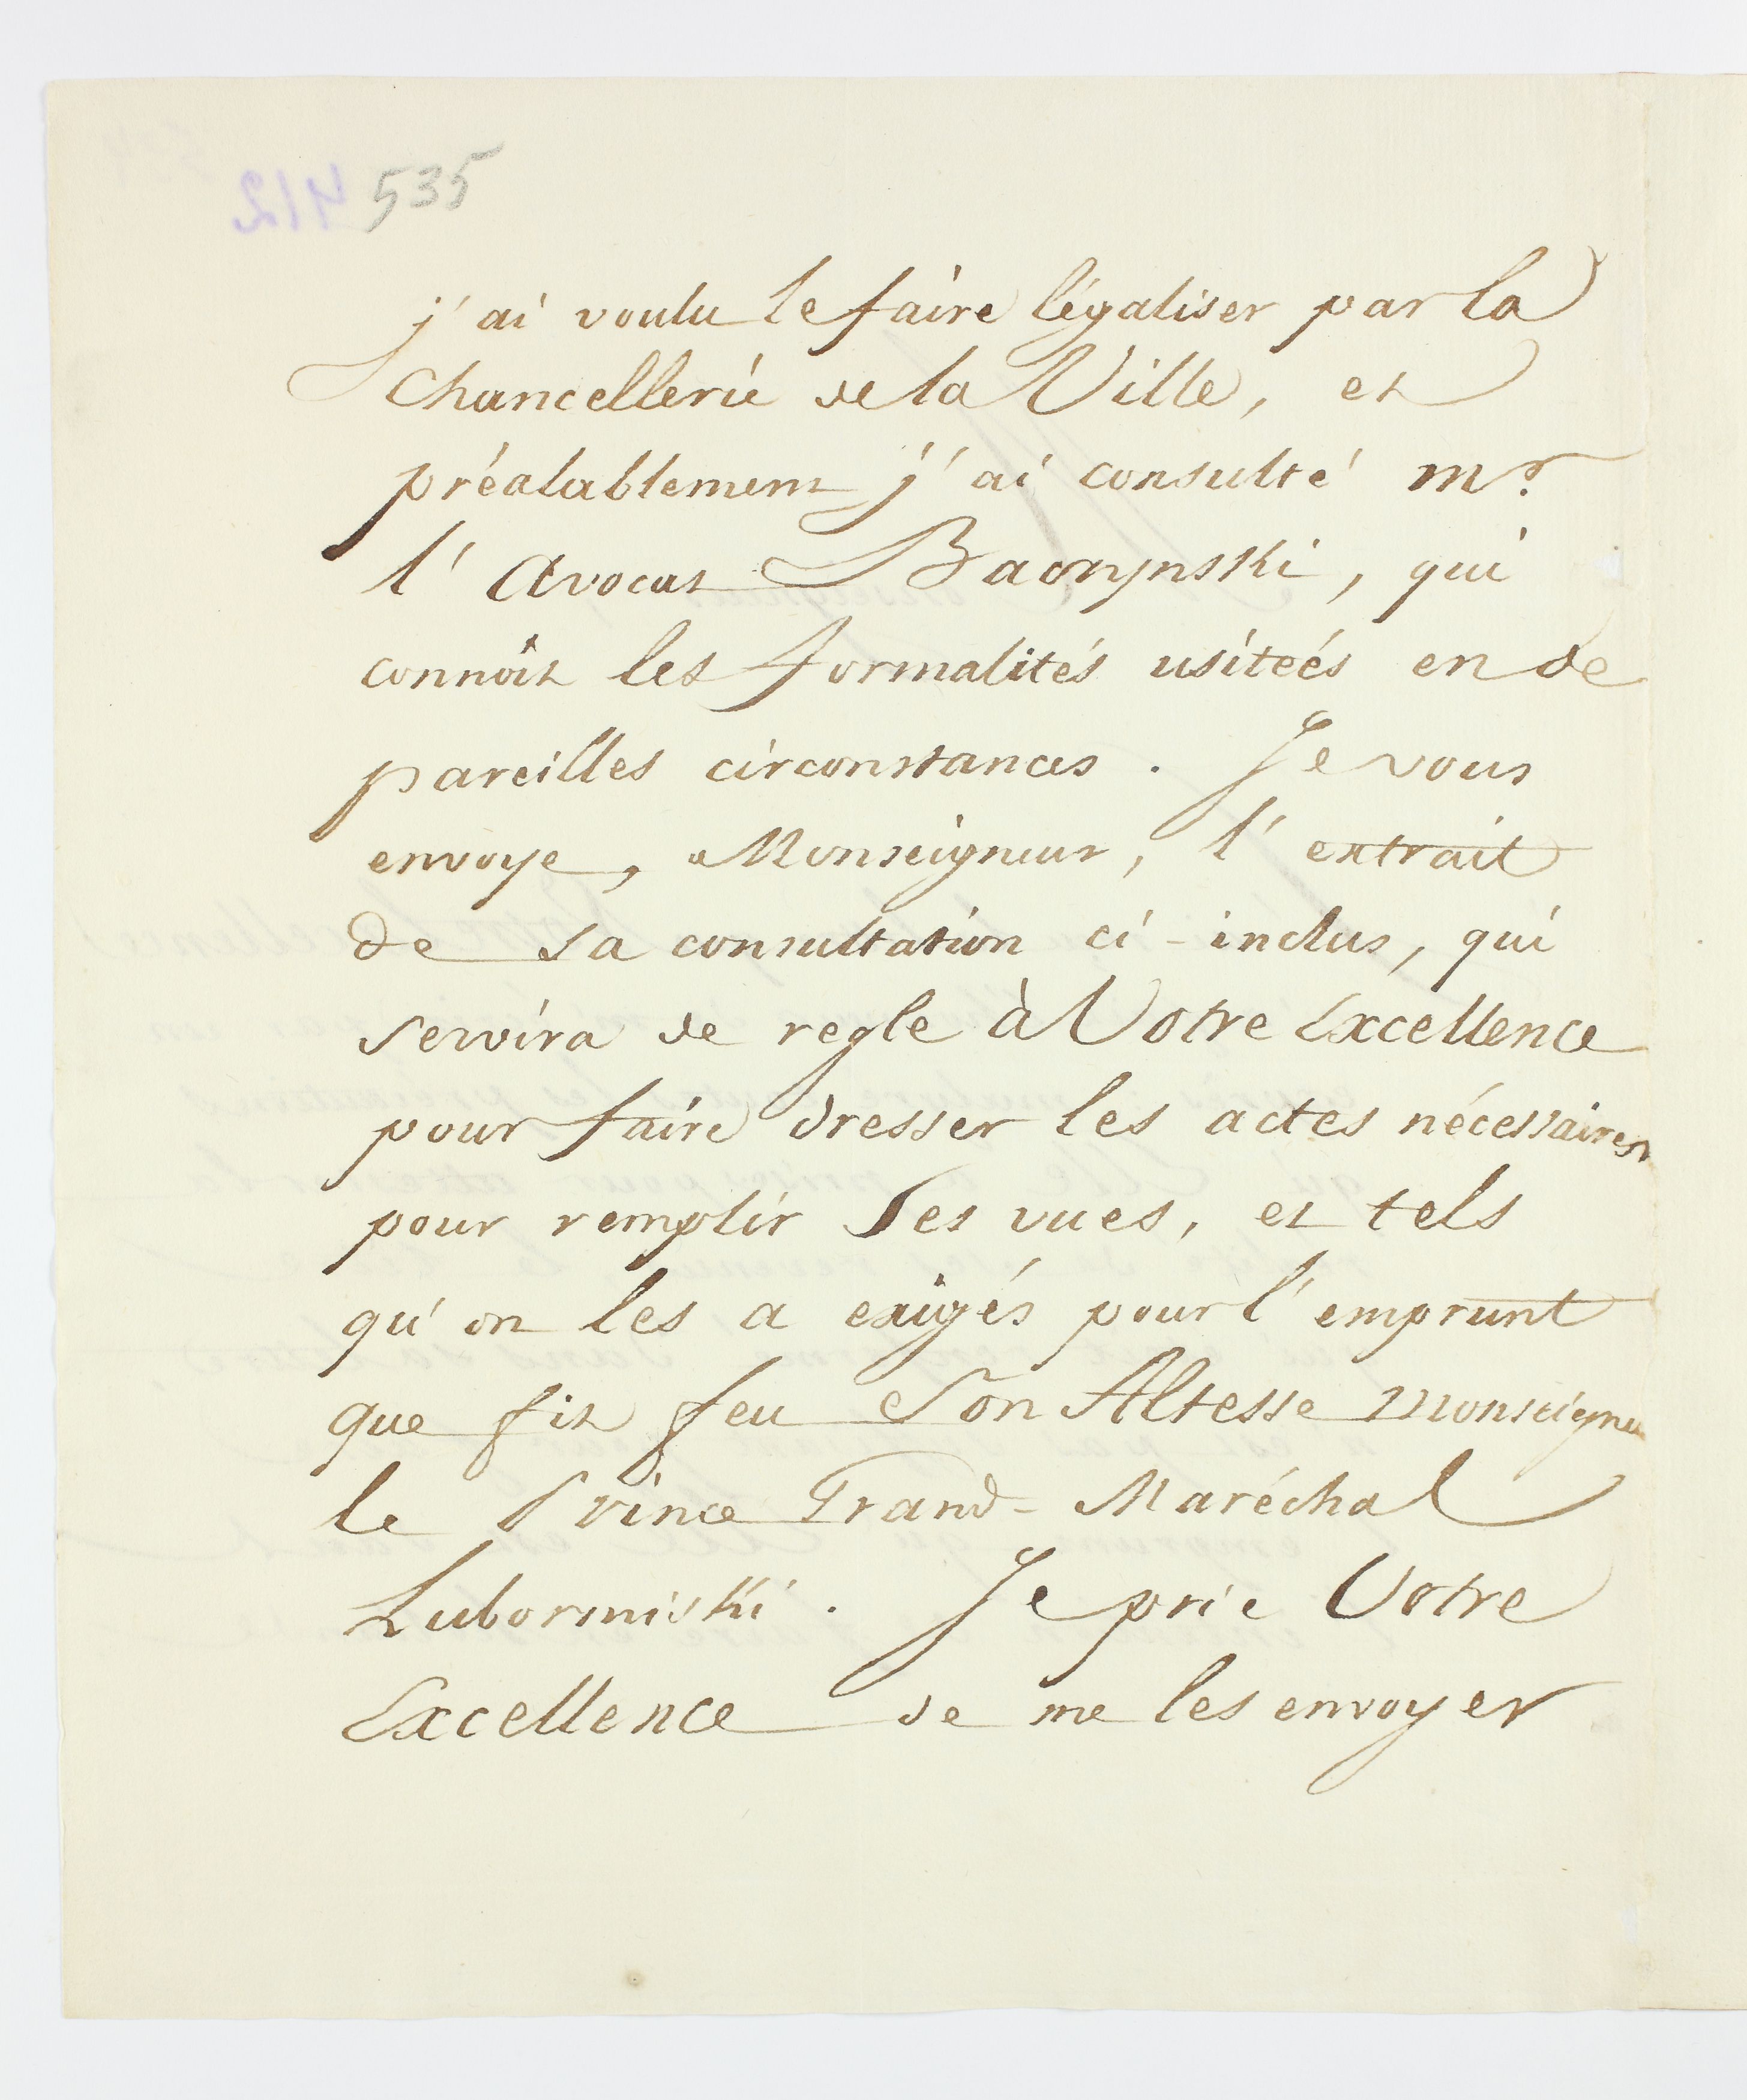 535
j'ai voulu le faire légaliser par la
Chancellerie de la Ville, et
préalablement j'ai consulté mr.
l'Avocat Bacrynski, qui
connoît les formalités usiteés en de
pareilles circonstances. Je vous
envoye, Monseigneur, l'extrait
de sa consultation ci-inclus, qui
servira de regle à Votre Excellence
pour faire dresser les actes nécessaires
pour remplir Ses vues, et tels
qu'on les a exigés pour l'emprunt
que fit feu Son Altesse Monseigneu
le Prince Grand-Maréchal
Lubormiski. Je prie Votre
Excellence de me les envoyer